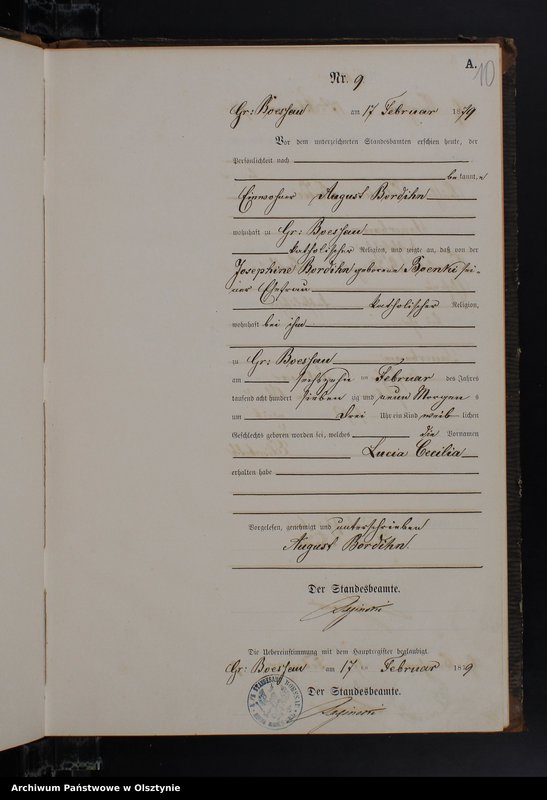 A.
10
Nr. 9
Gr: Boessau am 17 Februar 1879
Vor dem unterzeichneten Standesbeamten erschien heute, der
Persönlichkeit nach
bekannt,
Einwohner August Bordihn
wohnhaft zu Gr: Boessau
katholischer Religion, und zeigte an, daß von der
Josephine Bordihn geborene Boenki sei-
ner Ehefrau
katholischer Religion,
wohnhaft bei ihm
zu Gr: Boessau
am sechszehn ten Februar des Jahres
tausend acht hundert sieben zig und neun Morgens
um Drei Uhr ein Kind weib lichen
Geschlechts geboren worden sei, welches die Vornamen
Lucia Cecilia
erhalten habe
Vorgelesen, genehmigt und unterschrieben
August Bordihn.
Der Standesbeamte.
Die Uebereinstimmung mit dem Hauptregister beglaubigt.
Gr: Boessau am 17 ten Februar 1879
Der Standesbeamte.
Archiwum Państwowe w Olsztynie